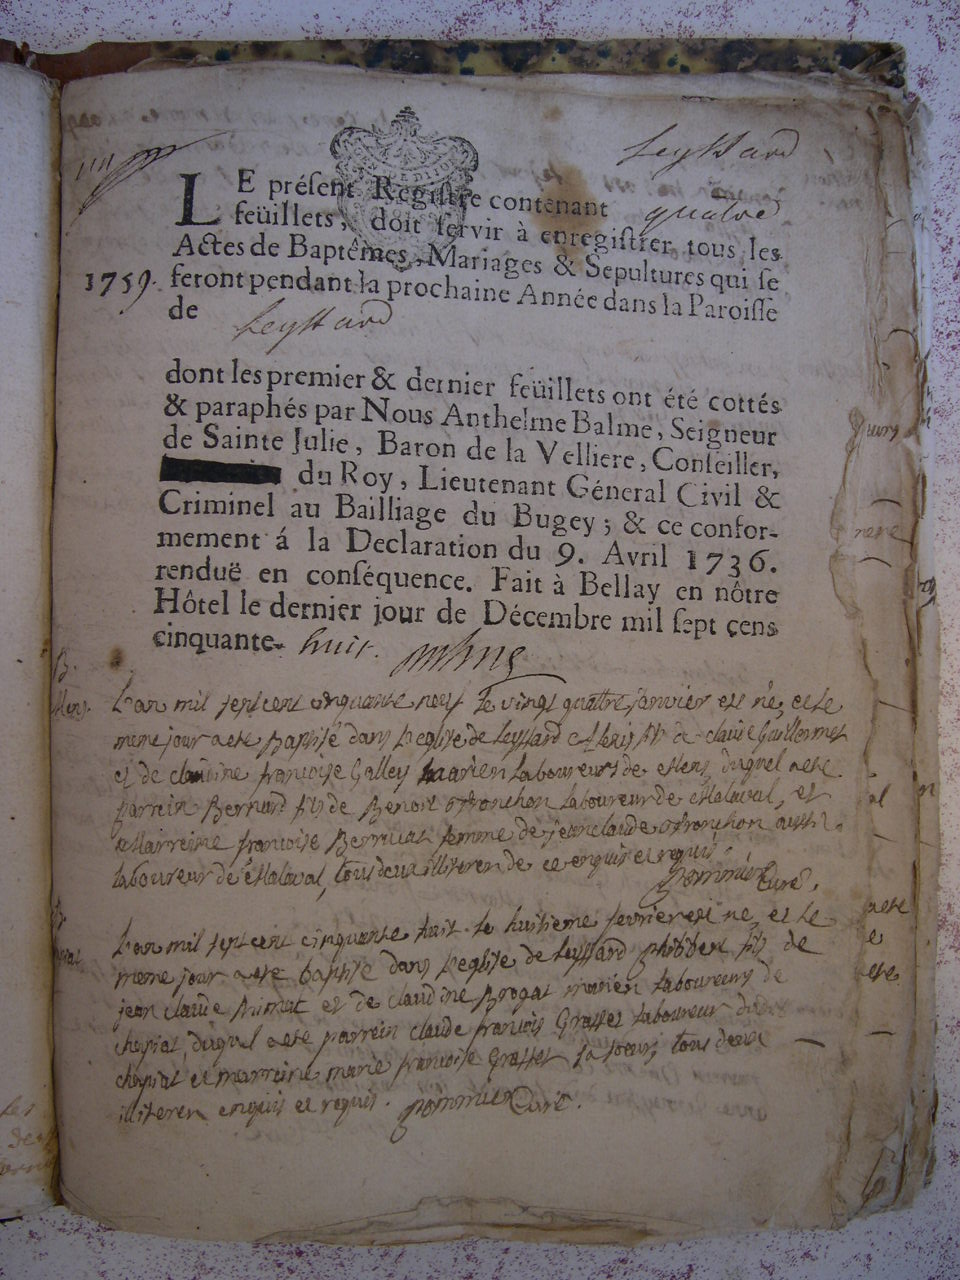 Leyssard
LE préſent Regiſtre contenant quatre
feüillets, doit ſervir à enregiſtrer tous les
Actes de Baptêmes, Mariages & Sepultures qui ſe
1759. feront pendant la prochaine Année dans la Paroiſſe
de Leyssard
dont les premier & dernier feüillets ont été cottés
& paraphés par Nous Anthelme Balme, Seigneur
de Sainte Julie, Baron de la Velliere, Conſeiller,
du Roy, Lieutenant Géneral Civil &
Criminel au Bailliage du Bugey; & ce confor-
mement á la Declaration du 9. Avril 1736.
renduë en conſéquence. Fait à Bellay en nôtre
Hôtel le dernier jour de Décembre mil ſept cens
cinquante- huit.
L'an mil sept cent cinquante neuf le vingt quatre janvier est né, et le
meme jour a eté Baptisé dans l'eglise de Leyssard fils de claude Guillermet
et de claudine françoise Galley mariés Laboureurs de duquel a eté
parrein Bernard fils de Benoit Laboureur de Malaval, et
Marreine françoise femme de jean claude aussi
laboureur de Malaval, tous deux illiteren de ce enquis et requis.
Pommier Curé.
L'an mil sept cent cinquante huit le huitieme fevrier est né, et le
meme jour a eté baptisé dans l'eglise de Leyssard philibert fils de
jean claude et de claudine Brogat mariés laboureurs de
chepiat, duquel a eté parrein claude françois Grasset laboureur du
chepiat et marreine marie françoise Grasset sa soeur, tous deux
illiteren enquis et requis. Pommier Curé.